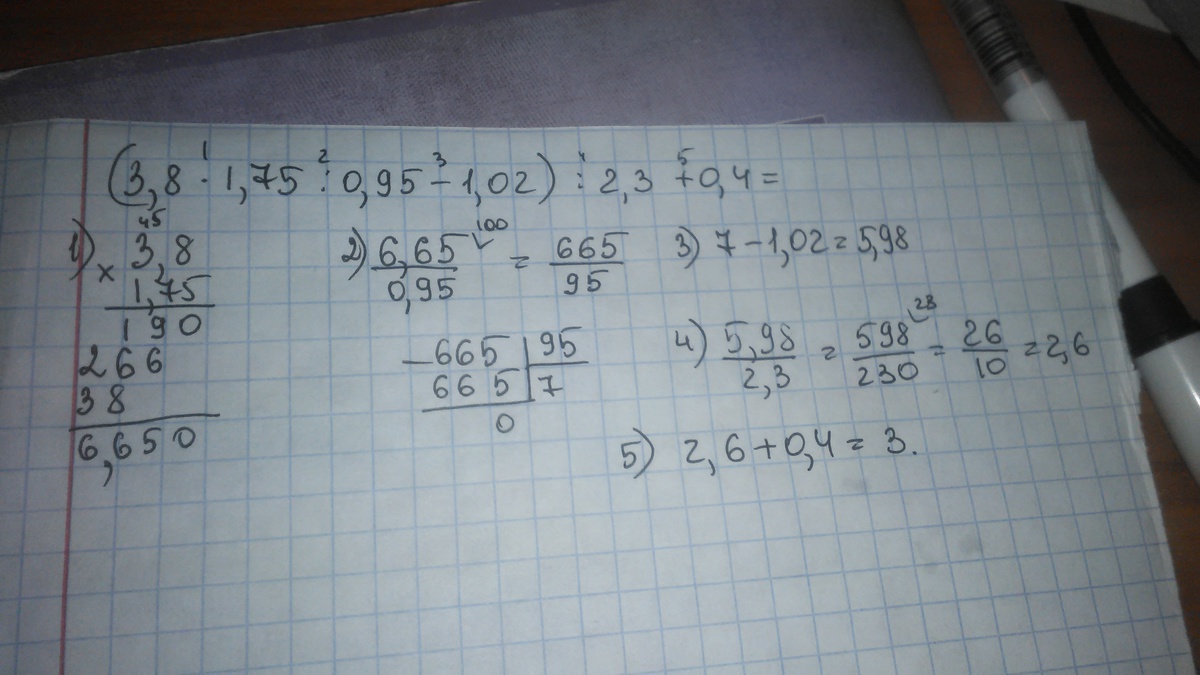 (3,8 · 1,75 : 0,95 − 1,02) : 2,3 + 0,4 =
1 2 3 4 5
1)
45
3,8
×
2
1,75
190
266
38
6,650
2) 6,65/0,95 = 665/95
100
665 | 95
− 665 | 7
0
3) 7 − 1,02 = 5,98
4) 5,98/2,3 = 598/230 = 26/10 = 2,6
5) 2,6 + 0,4 = 3.